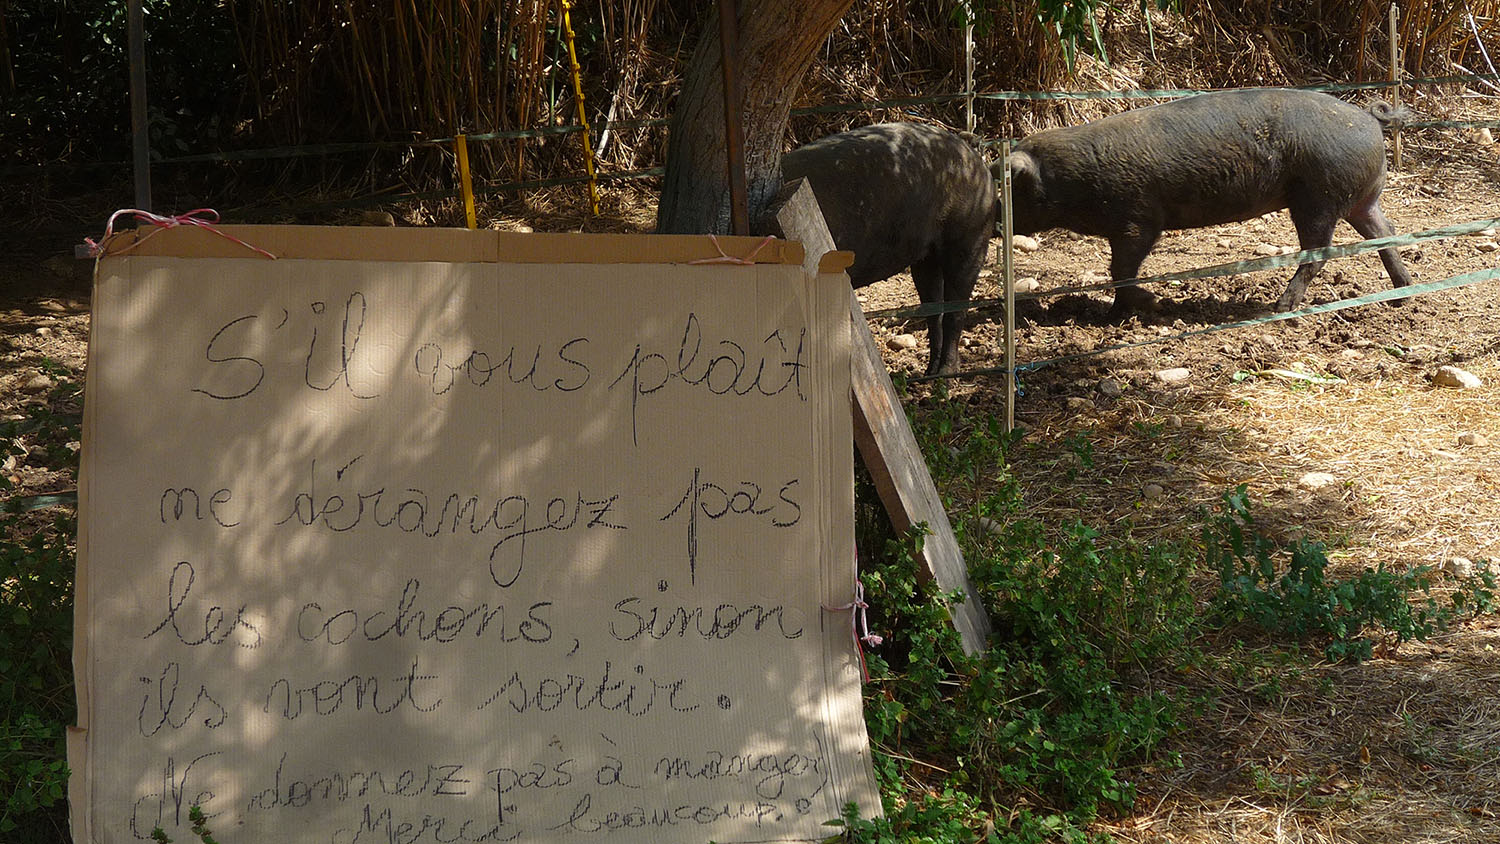 S'il vous plaît
ne dérangez pas
les cochons, sinon
ils vont sortir.
(Ne donnez pas à manger)
Merci beaucoup!